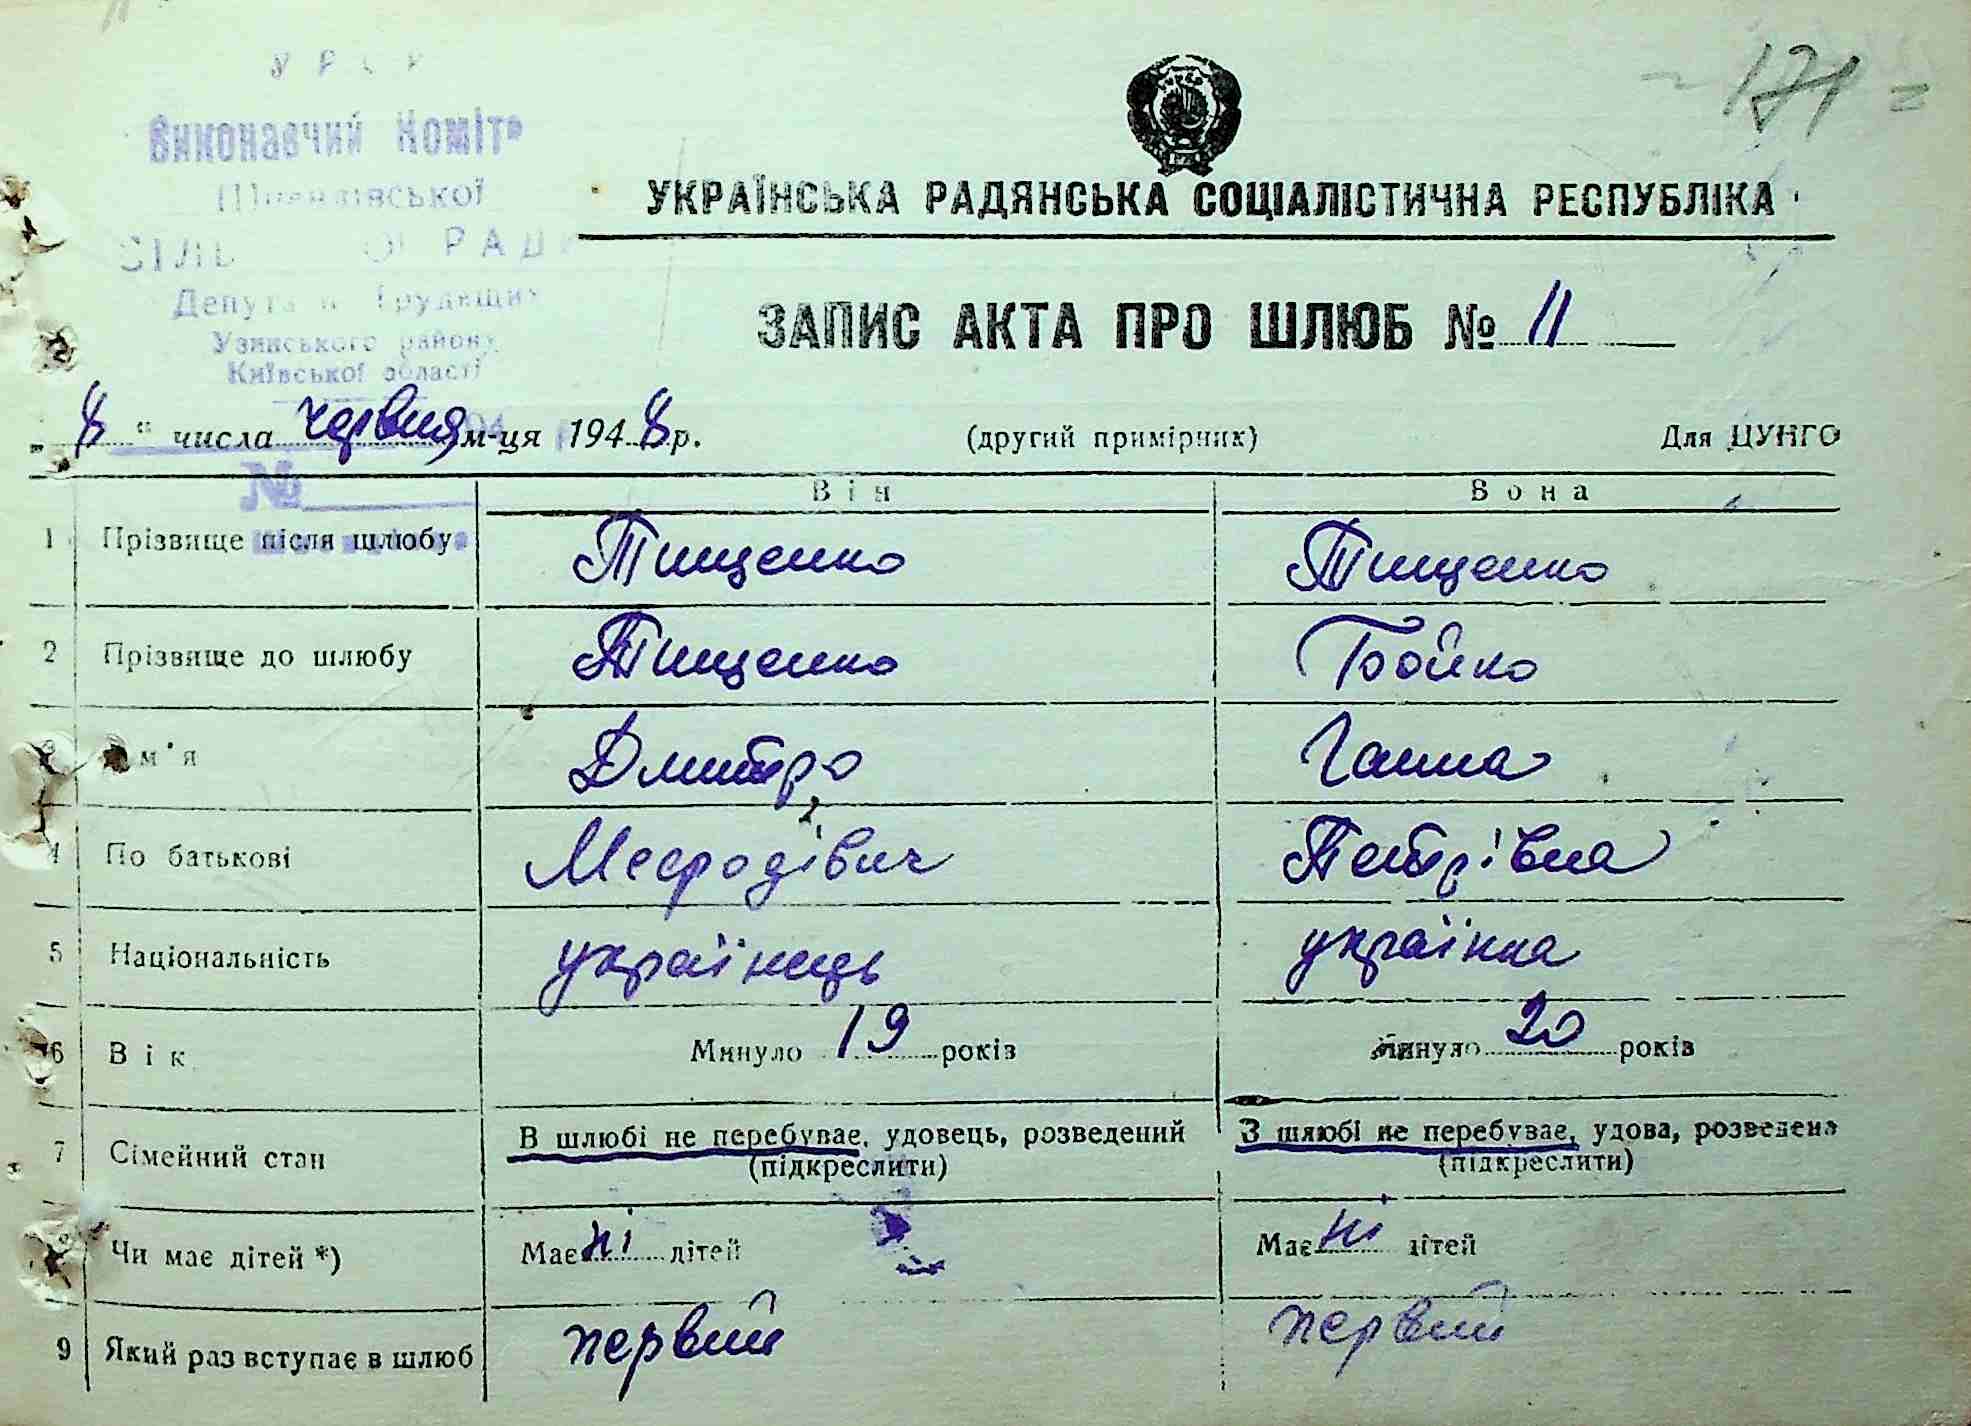 УРСР
Виконавчий Коміт
СІЛЬ РАДИ
Депута Трудящих
Узинського району
Київської області
171
УКРАЇНСЬКА РАДЯНСЬКА СОЦІАЛІСТИЧНА РЕСПУБЛІКА
ЗАПИС АКТА ПРО ШЛЮБ № 11
„8“ числа червня м-ця 1948 р. (другий примірник) Для ЦУНГО
№
Він Вона
1 Прізвище після шлюбу Тищенко Тищенко
2 Прізвище до шлюбу Тищенко Бойко
3 м'я Дмитро Ганна
4 По батькові Мефодівич Петрівна
5 Національність українець українка
6 Вік Минуло 19 років Минуло 20 років
7 Сімейний стан В шлюбі не перебуває, удовець, розведений З шлюбі не перебуває, удова, розведена
(підкреслити) (підкреслити)
Чи має дітей *) Має ні дітей Має ні дітей
9 Який раз вступає в шлюб первий первий